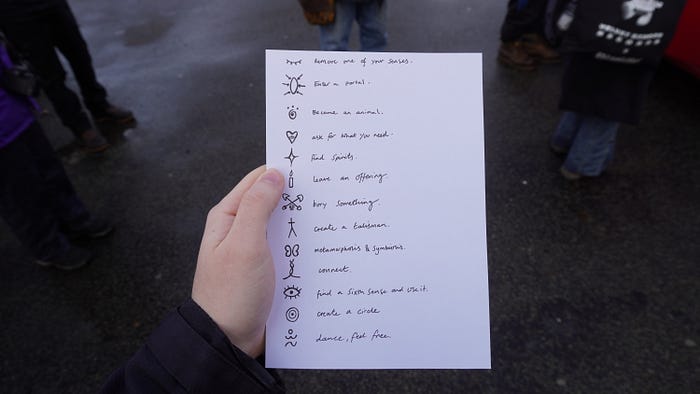 Remove one of your senses.
Enter a portal.
Become an animal.
ask for what you need.
find spirits.
leave an offering.
bury something.
create a talisman.
metamorphosis & symbiosis.
connect.
find a sixth sense and use it.
create a circle
dance, feel free.